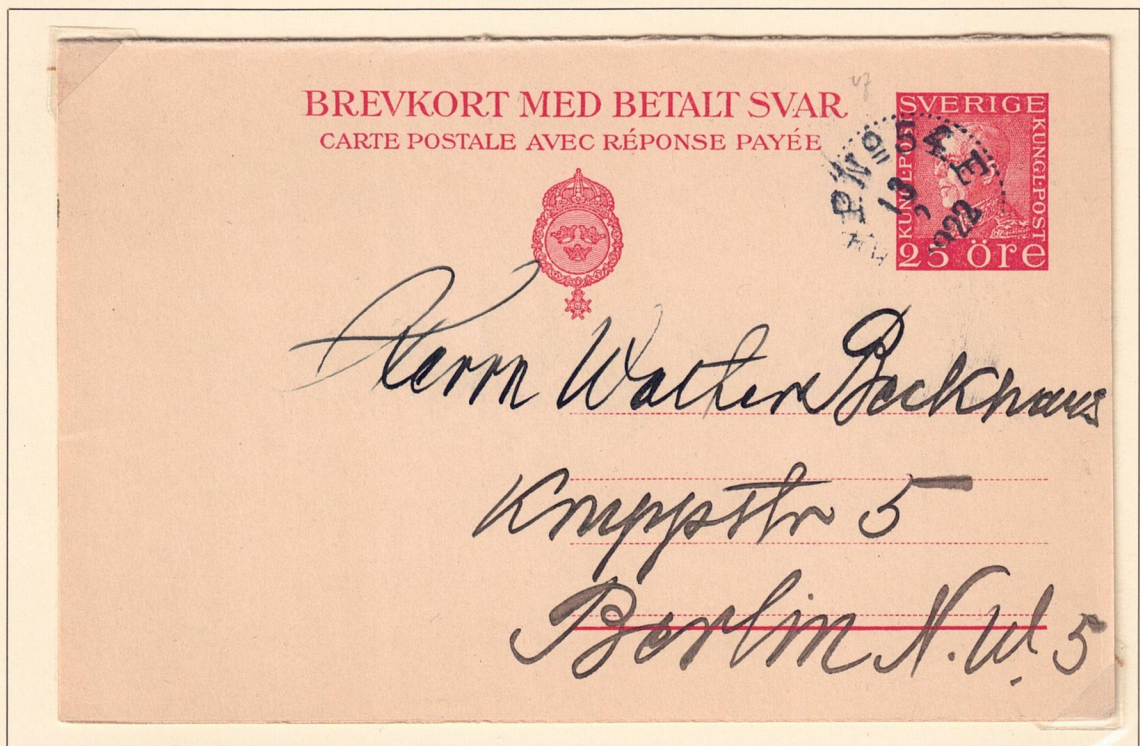 BREVKORT MED BETALT SVAR
CARTE POSTALE AVEC RÉPONSE PAYÉE
SVERIGE
KUNGL. POST
KUNGL. POST
25 öre
PNº 54 E
13
1922
Herrn Walther Beckhaus
Kruppstr 5
Berlin N.W. 5